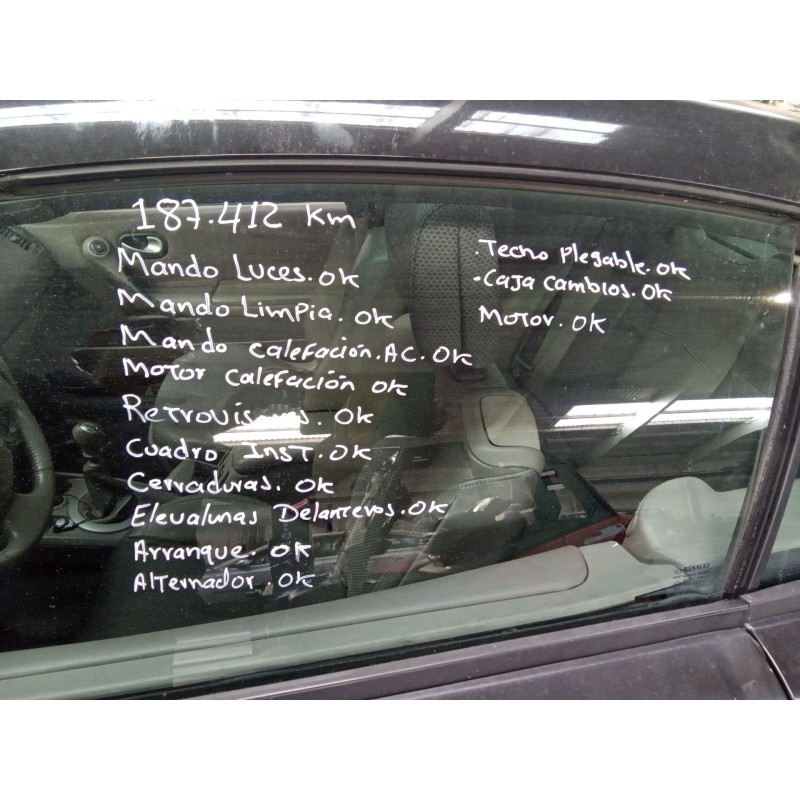 187.412 Km
Mando Luces. OK
Mando Limpia. OK
Mando calefación. AC. OK
Motor calefación OK
Retrovisores. OK
Cuadro Inst. OK
Cerraduras. OK
Elevalunas Delanteros. OK
Arranque. OK
Alternador. OK
. Techo Plegable. OK
. Caja cambios. OK
Motor. OK
RENAULT